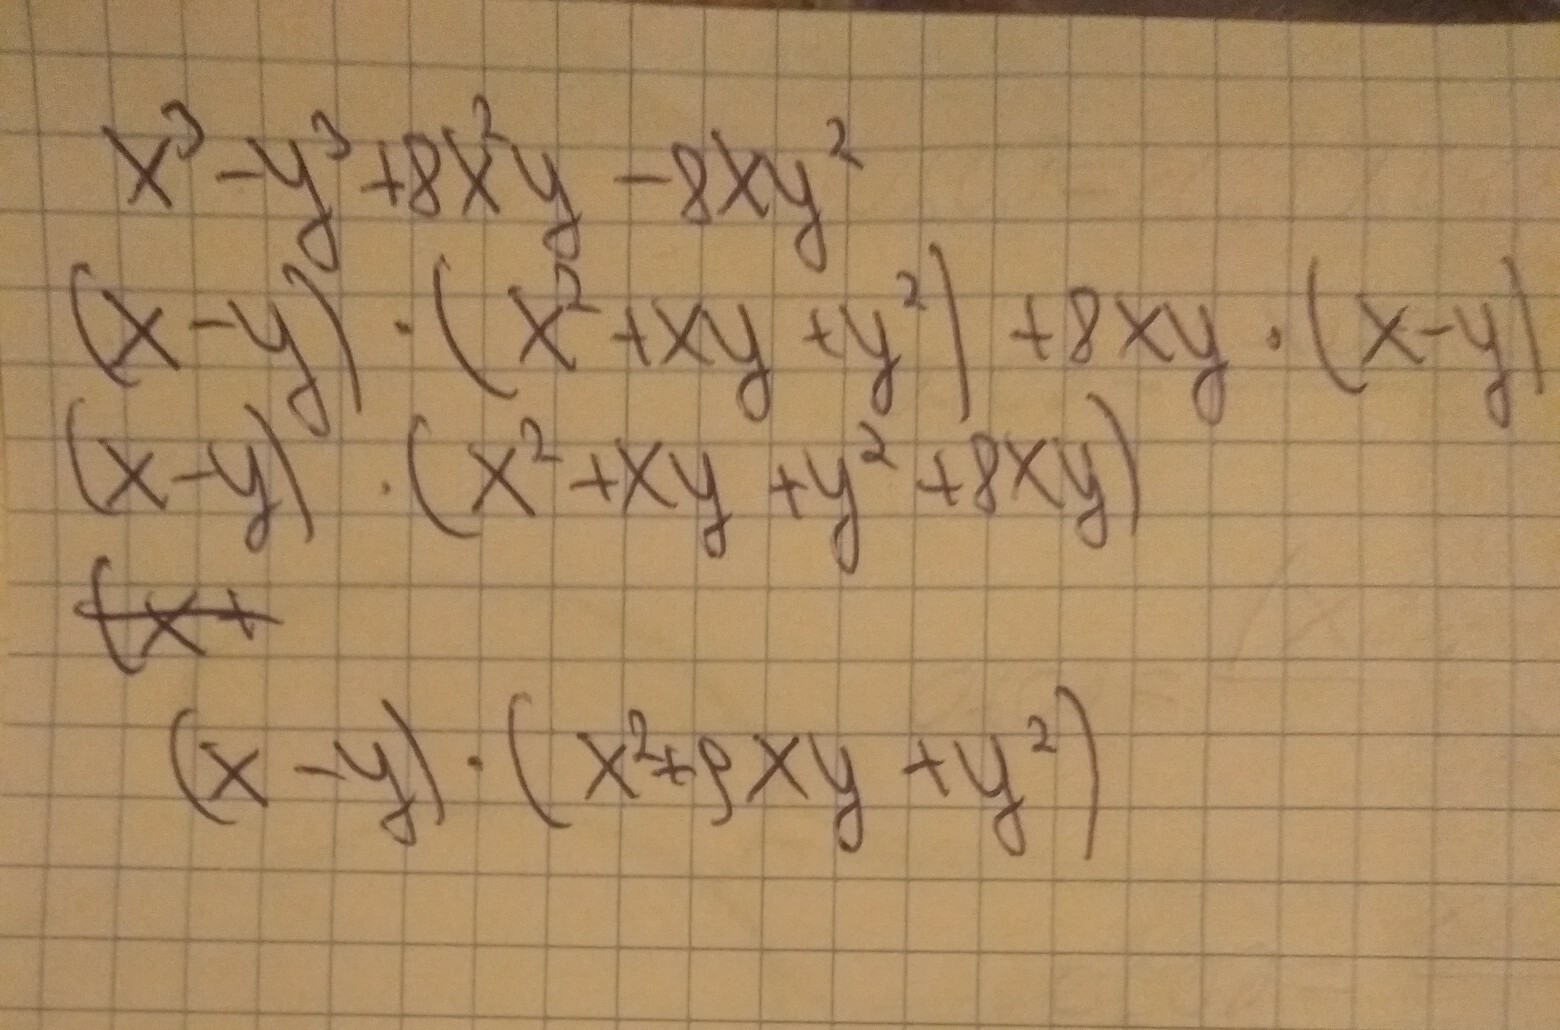 x³ - y³ + 8x²y - 8xy²
(x - y) · (x² + xy + y²) + 8xy · (x - y)
(x - y) · (x² + xy + y² + 8xy)
(x +
(x - y) · (x² + 9xy + y²)